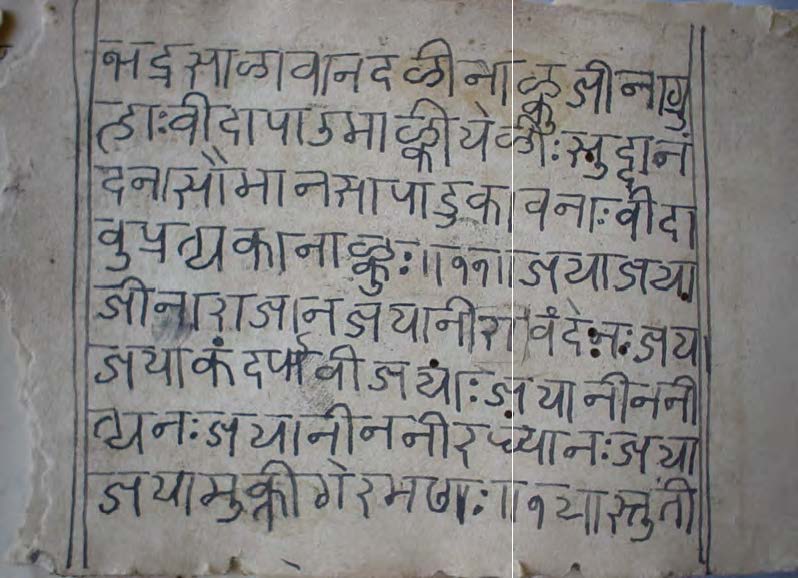 भद्रसाळावानदळीनाळ्कुजीनागु
त्डाःवीदापाउमाळ्कीयेळीःसुदानं
दनासौमानसापाडुकावनाःवीदा
वुप्रत्यकानाळ्कुः॥११॥जयाजया
जीनाराजानजयानीरावंदेनःजय
जयाकंदर्पावीजयाःजयानीननी
त्यनःजयानीननीरध्यानःजया
जयामुक्तीगेरमणाः॥१यास्तुती